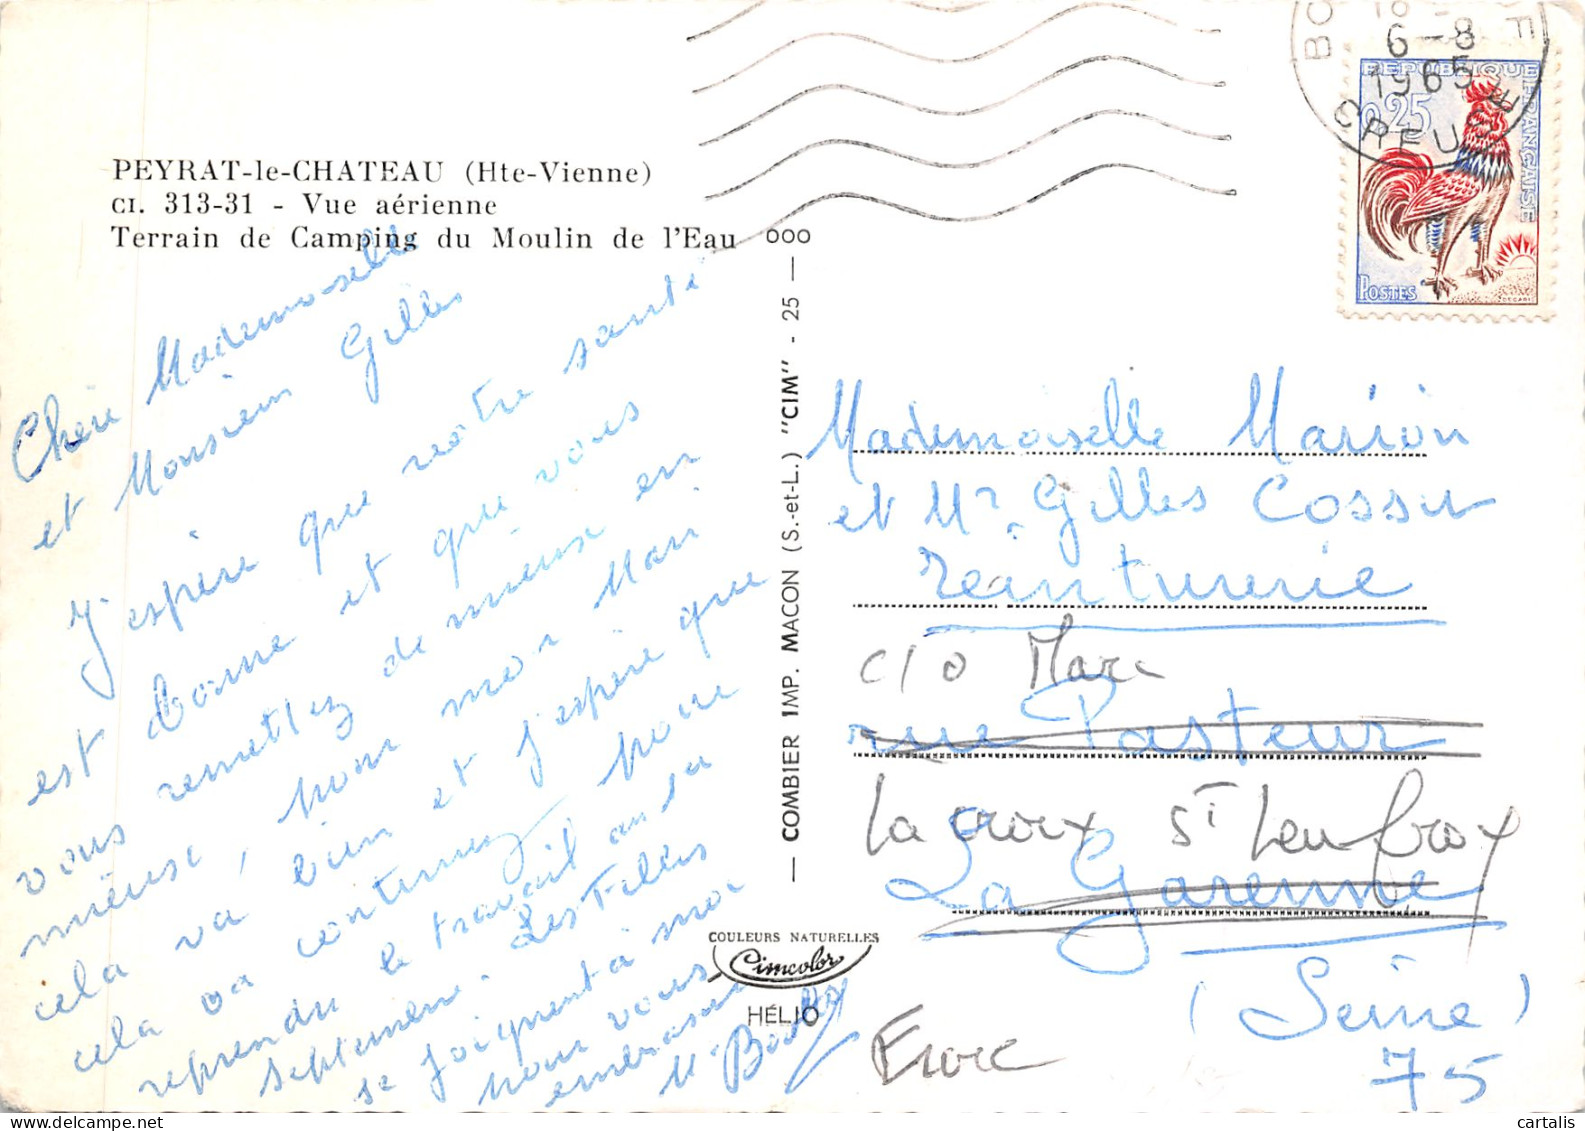 PEYRAT-le-CHATEAU (Hte-Vienne)
CI. 313-31 - Vue aérienne
Terrain de Camping du Moulin de l'Eau
Chère Mademoiselle
et Monsieur Gilles
J'espère que votre santé
est bonne et que vous
vous remettez de mieux en
mieux, pour moi Mari
cela va bien et j'espère que
cela va continuez pour
reprendre le travail au la
Septembre. Les Filles
se joignent à moi
pour vous
embrasser
COMBIER IMP. MACON (S.-et-L.) "CIM" - 25 - 000
COULEURS NATURELLES
Cimcolor
HÉLIO
6-8
1965
CREUSE
RÉPUBLIQUE FRANÇAISE
0,25
POSTES
DECARIS
Mademoiselle Marion
et Mr Gilles Cossu
Teinturerie
c/o Marc
rue Pasteur
La Croix St Leufroy
La Garenne
(Seine)
75
Eure
cartalis